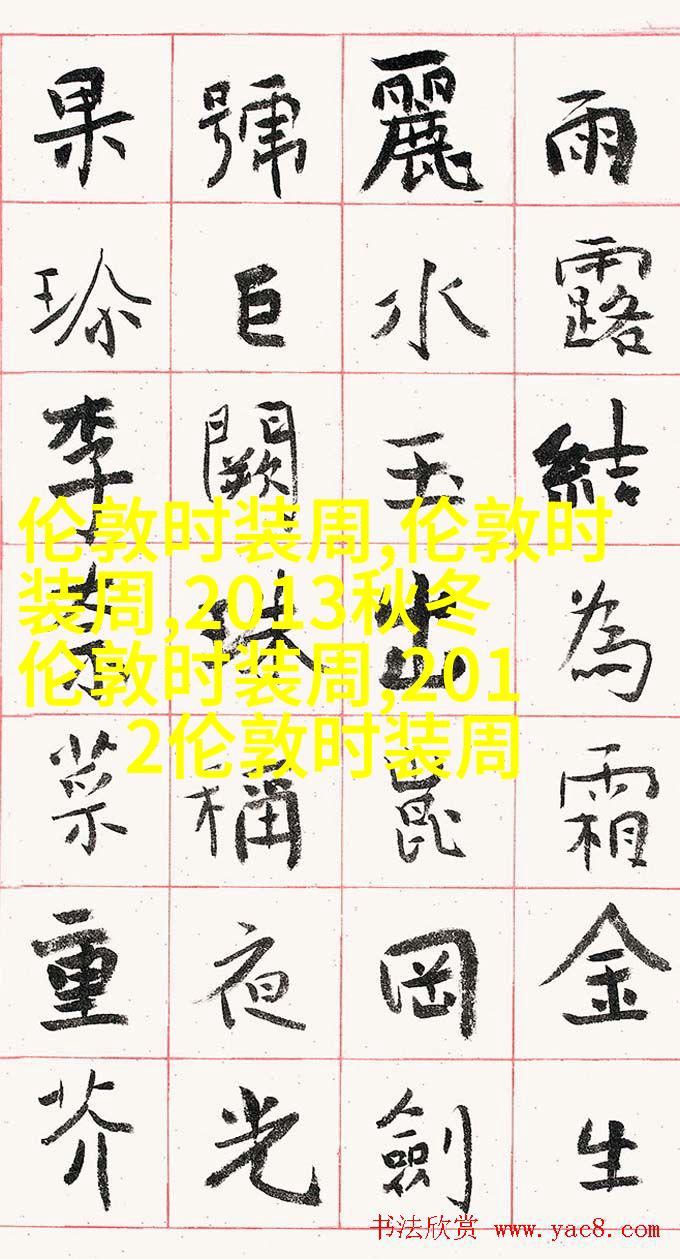 雨露結為霜金生
麗水玉出崑岡劍
號巨闕珠稱夜光
果珎李柰菜重芥
伦敦时装周,伦敦时
装周,2013秋冬
伦敦时装周,201
2伦敦时装周
书法欣赏 www.yac8.com